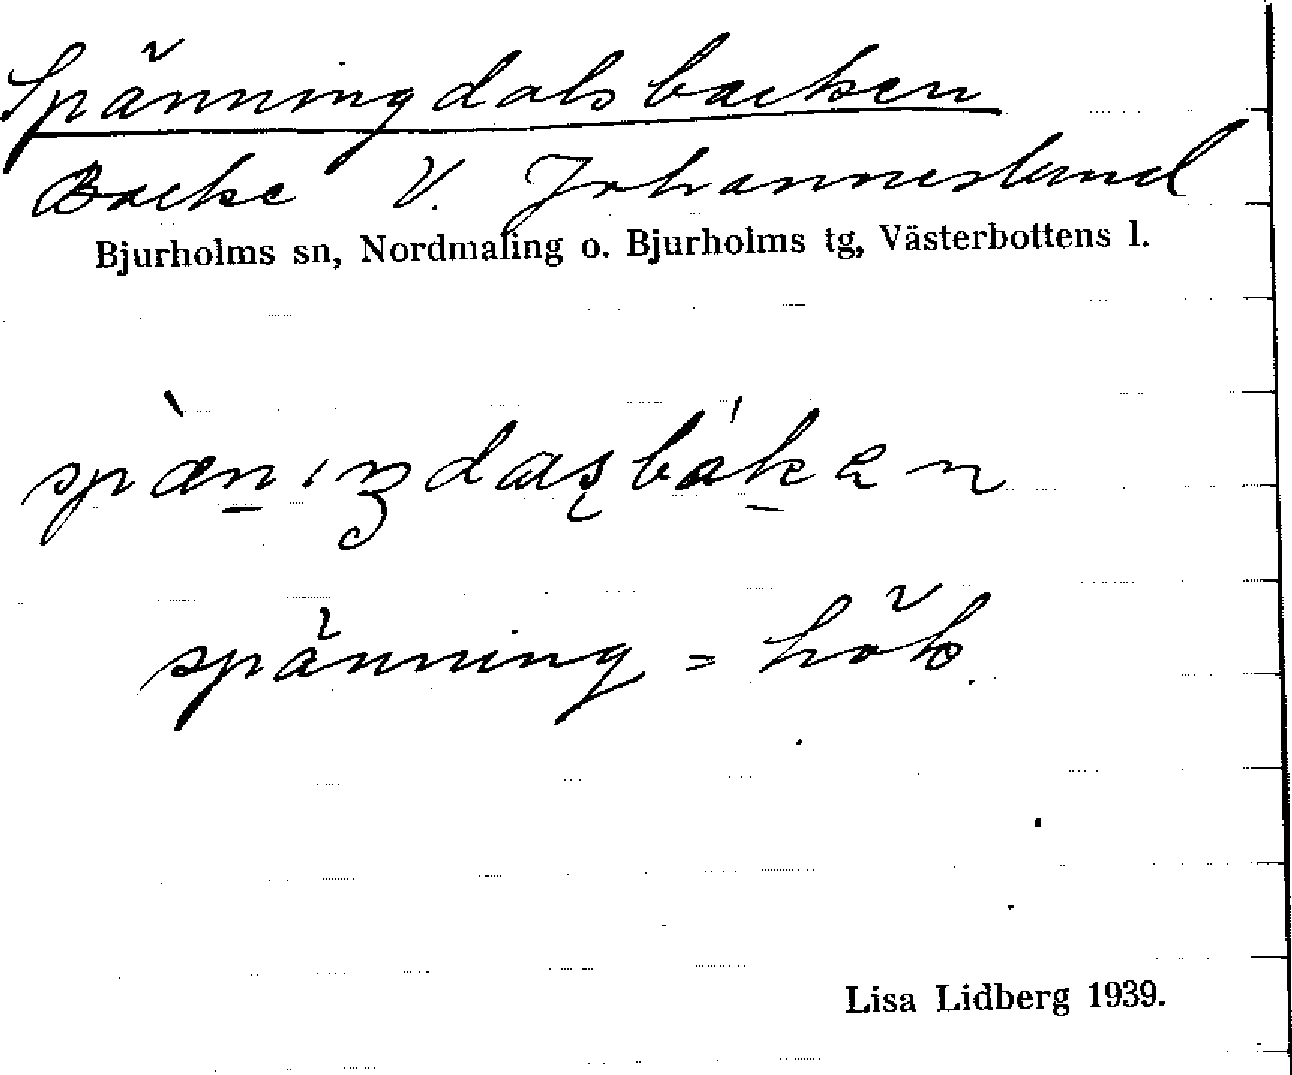 Spänningdalsbacken
Backe V. Johannesland
Bjurholms sn, Nordmaling o. Bjurholms tg, Västerbottens l.
spänning = hök.
Lisa Lidberg 1939.